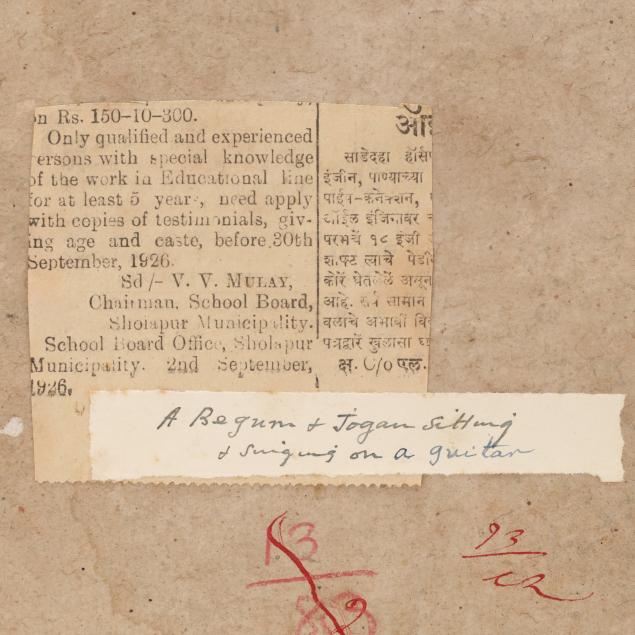 on Rs. 150-10-300.
Only qualified and experienced
persons with special knowledge
of the work in Educational line
for at least 5 years, need apply
with copies of testimonials, giv-
ing age and caste, before 30th
September, 1926.
Sd/- V. V. MULAY,
Chairman, School Board,
Sholapur Municipality.
School Board Office, Sholapur
Municipality. 2nd September,
1926.
साडेदहा हॉर्स
इंजीन, पाण्याच्या
पाईप-कनेक्शन,
ऑईल इंजिनाबर
१८ इंजी
त्याचे पेडी
कोरें घेतलेलें असून
आहे. सर्व सामान
बलाचे अभावीं वि
पत्रद्वारें खुलासा घ
क्ष. C/o एल.
A Begum & Jogan sitting
& singing on a guitar
13
93